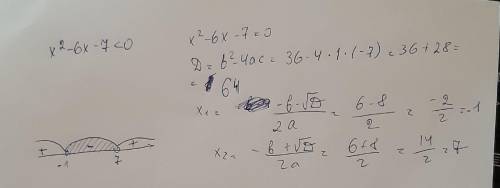 x²-6x-7<0
x²-6x-7=0
D = b²-4ac = 36-4·1·(-7) = 36+28 =
= 64
x₁ = (-b-√D)/2a = (6-8)/2 = -2/2 = -1
x₂ = (-b+√D)/2a = (6+8)/2 = 14/2 = 7
+ - +
-1 7